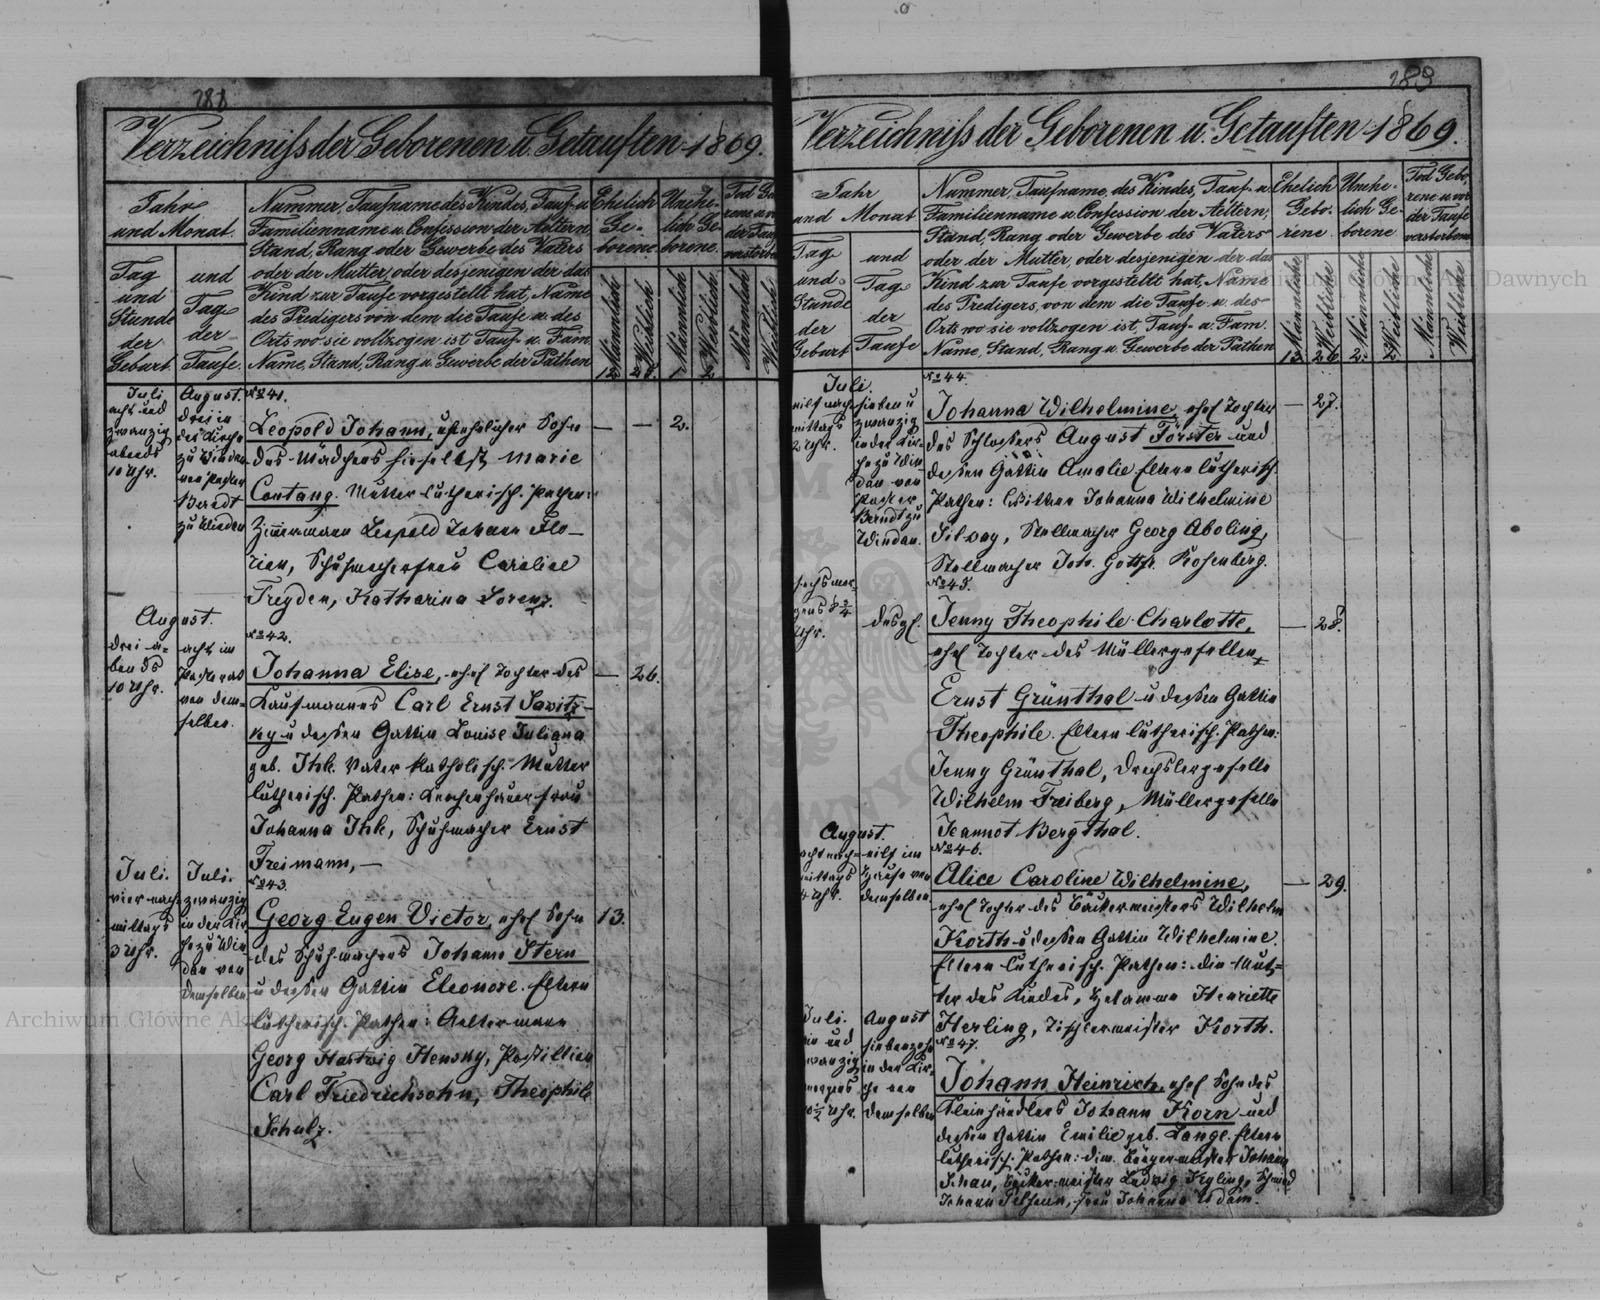 288
Verzeichniß der Geborenen u. Getauften 1869.
Jahr und Monat.
Tag und Stunde der Geburt
und Tag der Taufe.
Nummer, Taufname des Kindes, Tauf- u.
Familienname u. Confession der Aeltern,
Stand, Rang oder Gewerbe des Vaters
oder der Mutter, oder desjenigen der das
Kind zur Taufe vorgestellt hat, Name
des Predigers von dem die Taufe u. des
Orts wo sie vollzogen ist, Tauf- u. Fam.
Name, Stand, Rang u. Gewerbe der Pathen
Ehelich Geborene.
Unehelich Geborene.
Männlich
Weiblich
Männlich
Weiblich
Männlich
Weibliche
Juli
acht und
zwanzig
abends
10 Uhr.
August.
drei in
der Kirche
zu Windau
von Pastor
Berndt
zu Windau
No 41.
Leopold Johann, unehelicher Sohn — — 2.
des Mädchens hieselbst Marie
Contang. Mutter lutherisch. Pathen:
Zimmermann Leopold Johann Flo-
rien, Schuhmacherfrau Caroline
Freyden, Katharina Lorenz.
August.
drei a-
bends
10 Uhr.
acht im
Pastorat
von dem-
selben.
No 42.
Johanna Elise, ehel Tochter des — 26.
Kaufmannes Carl Ernst Savitz-
ky u dessen Gattin Louise Juliana
geb. Ihk. Vater katholisch. Mutter
lutherisch. Pathen:
Johanna Ihk, Schuhmacher Ernst
Freimann, —
Juli.
vier nach-
mittags
3 Uhr.
Juli.
zwanzig
in der Kir-
che zu Win
dau von
demselben
No 43.
Georg Eugen Victor, ehel Sohn 13.
des Schuhmachers Johann Stern
u dessen Gattin Eleonore. Eltern
lutherisch. Pathen: Aeltermann
Georg Hartwig Hensky, Postillion
Carl Friedrichsohn, Theophile
Schulz.
289
Verzeichniß der Geborenen u. Getauften 1869.
Jahr und Monat
Tag und Stunde der Geburt
und Tag der Taufe
Nummer, Taufname, des Kindes, Tauf- u.
Familienname u. Confession der Aeltern,
Stand, Rang oder Gewerbe des Vaters
oder der Mutter, oder desjenigen der das
Kind zur Taufe vorgestellt hat, Name
des Predigers, von dem die Taufe u. des
Orts wo sie vollzogen ist, Tauf- u. Fam.
Name, Stand, Rang u. Gewerbe der Pathen
Ehelich Geborene
Unehelich Geborene
Tod Geborene u. vor der Taufe verstorbene
Männliche
Weibliche
Männliche
Weibliche
Männliche
Weibliche
13. 26. 2.
Juli.
elf nach-
mittags
2 Uhr.
sieben u
zwanzig
in der Kir-
che zu Win
dau von
Pastor
Berndt zu
Windau.
No 44.
Johanna Wilhelmine, ehel Tochter — 27.
des Schlossers August Förster und
dessen Gattin Amalie. Eltern lutherisch.
Pathen: Johanna Wilhelmine
Stellmacher Georg Aboling,
Stellmacher Joh. Gottfr. Rosenberg.
sechs mor-
gens 8 3/4
Uhr.
desgl.
No 45.
Jenny Theophile Charlotte, — 28.
ehel Tochter des Müllergesellen
Ernst Grünthal u dessen Gattin
Theophile. Eltern lutherisch. Pathen:
Jenny Grünthal, Drechslergeselle
Wilhelm Freiberg, Müllergeselle
Jeannot Bergthal.
August.
acht nach-
mittags
4 Uhr.
elf im
Hause von
demselben
No 46.
Alice Caroline Wilhelmine, — 29.
ehel Tochter des Bäckermeisters Wilhelm
Korth u dessen Gattin Wilhelmine.
Eltern lutherisch. Pathen: die Mut-
ter des Kindes, Hebamme Henriette
Herling, Tischlermeister Korth.
Juli.
ein und
zwanzig
morgens
10 1/2 Uhr.
August
siebenzehn
in der Kir-
che von
demselben
No 47.
Johann Heinrich, ehel Sohn des
Kleinhändlers Johann Korn und
dessen Gattin Emilie geb. Lange. Eltern
lutherisch. Pathen: dim. Bürgermeister Johann
Schau, Bäckermeister Ludwig Schmied
Johann Frau Johanna Adam.
Archiwum Główne Akt Dawnych
Archiwum Główne Ak